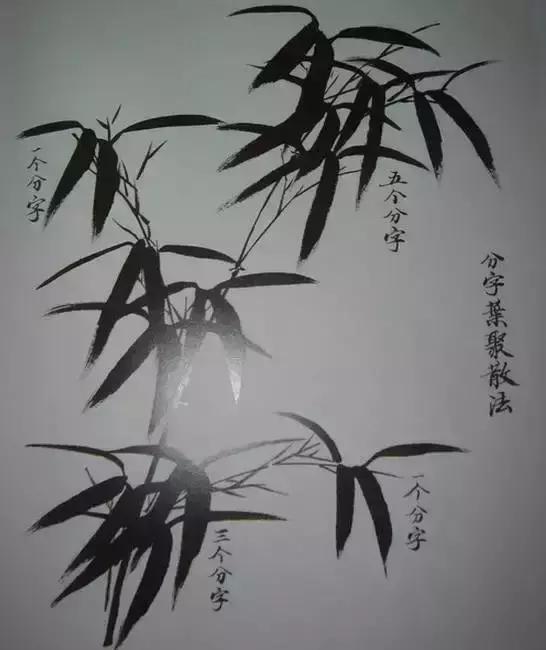 分字葉聚散法
五个分字
一个分字
一个分字
三个分字